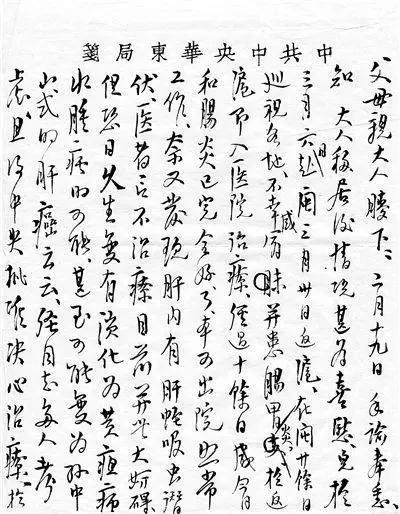 中共中央華東局箋
父母親大人膝下：二月十九日手諭奉悉、
知 大人移居後情况甚為喜慰。兒於
三月六日赴閩三月卅日返滬、在閩廿條日
巡視各地、不幸感冒并患腸胃炎於返
滬即入医院治療。經過十條日感冒
和腸炎已完全好了、本可出院照常
工作、奈又發現肝内有肝蛭吸虫潛
伏、医者言不治療目前并無大妨礙
但恐日久生變有演化為黄疸病
水腫病的可能、甚至可能變為孫中
山式的肝癌云云、經同志多人考
慮、且得中央批准決心治療、於